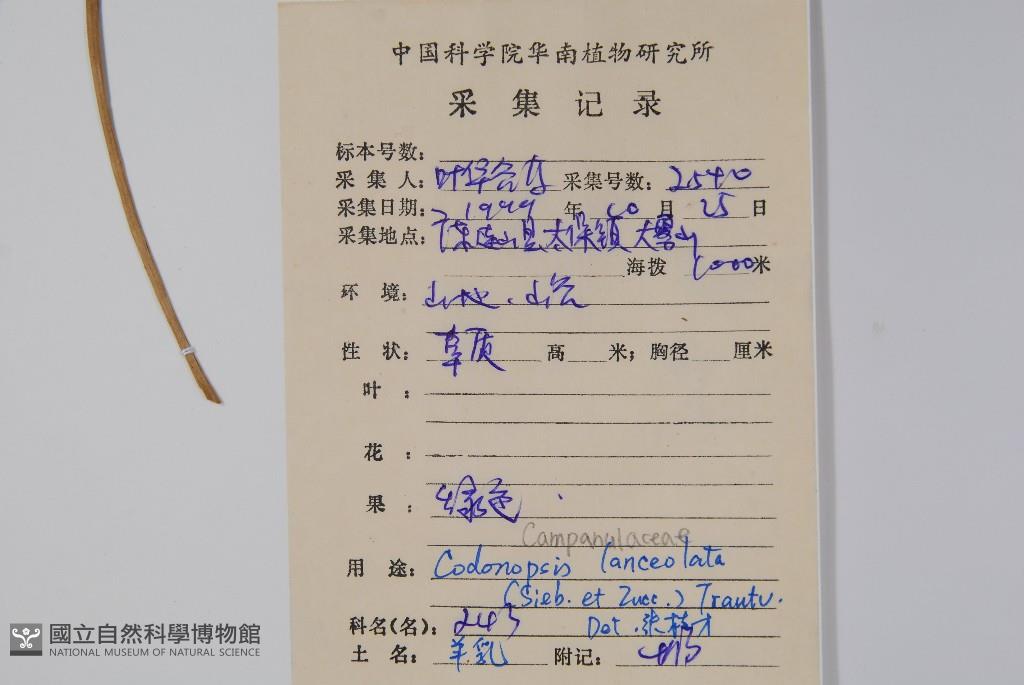 中国科学院华南植物研究所
采集记录
标本号数：
采集人：叶华谷 采集号数：2540
采集日期：1999年10月25日
采集地点：广东连山县太保镇大雾山
海拨 1000米
环境：山地、山谷
性状：草质 高 米；胸径 厘米
叶：
花：
果：绿色
Campanulaceae
用途：Codonopsis lanceolata
(Sieb. et Zucc.) Trautv.
科名(名)：243 Det. 张
土名：羊乳 附记：
國立自然科學博物館
NATIONAL MUSEUM OF NATURAL SCIENCE